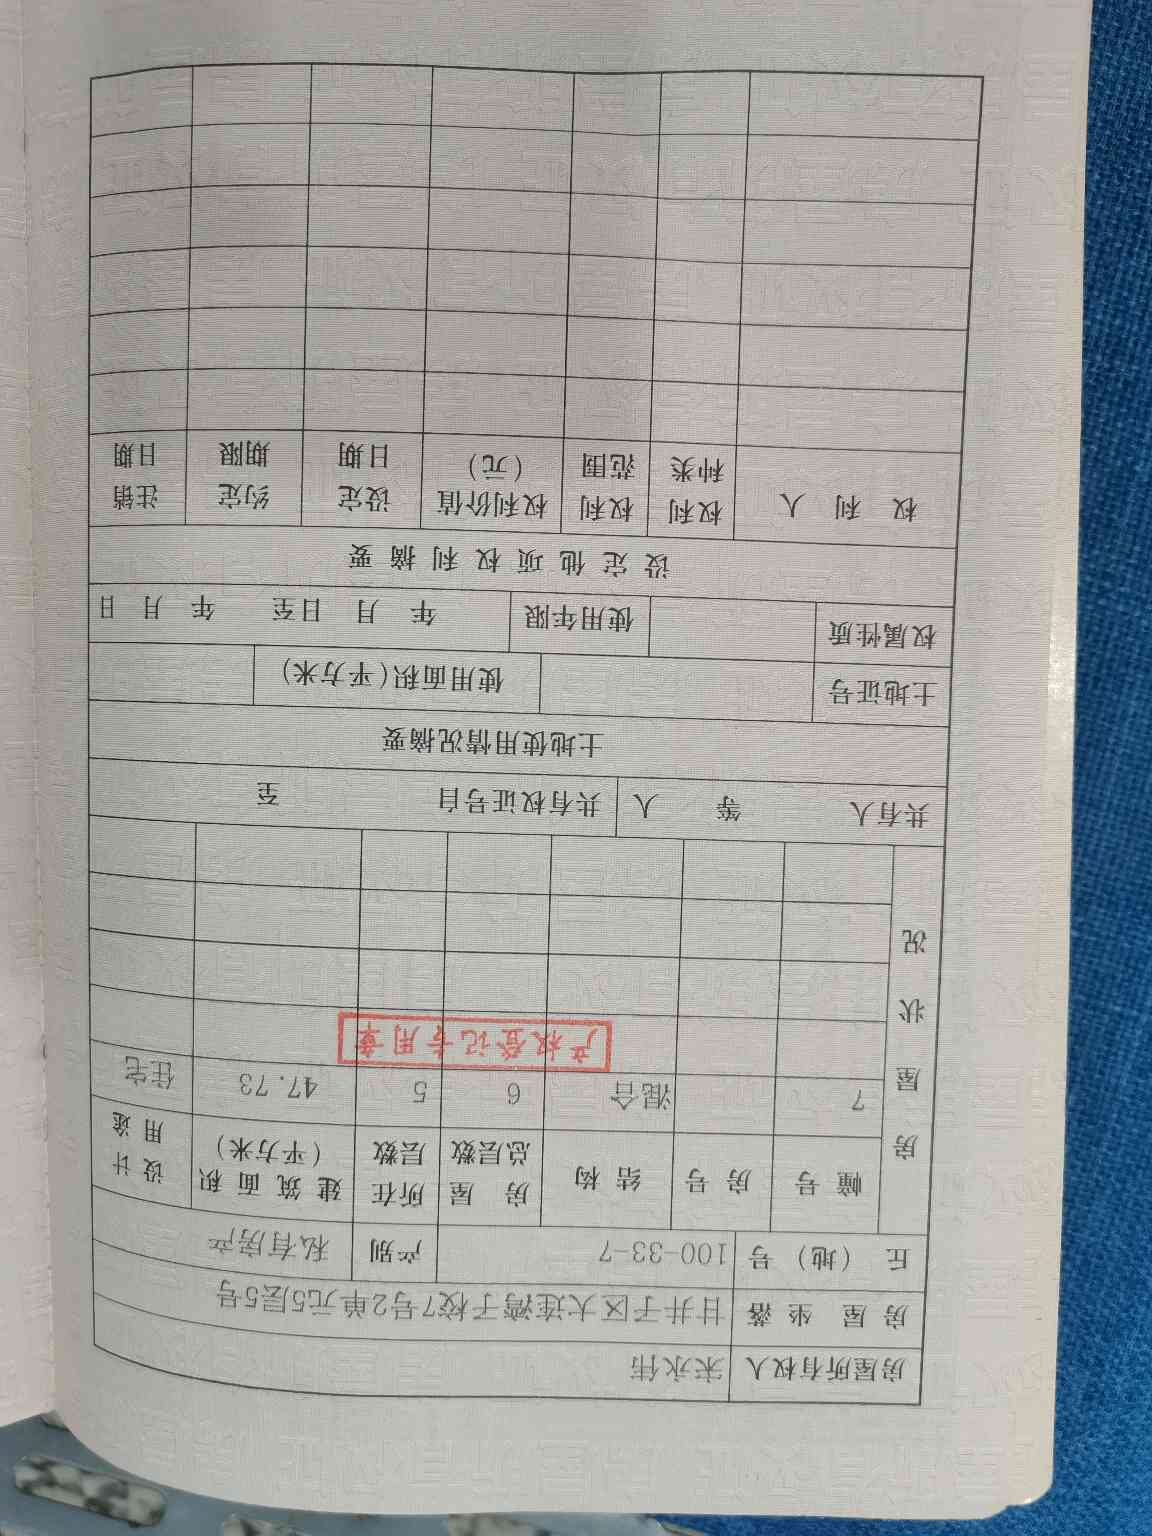 房屋所有权人 宋永伟
房屋坐落 甘井子区大连湾子校7号2单元5层5号
丘（地）号 100-33-7 产别 私有房产
房屋状况 幢号 房号 结构 房屋总层数 所在层数 建筑面积（平方米） 设计用途
7 混合 6 5 47.73 住宅
产权登记专用章
共有人 等 人 共有权证号自 至
土地使用情况摘要
土地证号 使用面积(平方米)
权属性质 使用年限 年 月 日至 年 月 日
设定他项权利摘要
权利人 权利种类 权利范围 权利价值（元） 设定日期 约定期限 注销日期